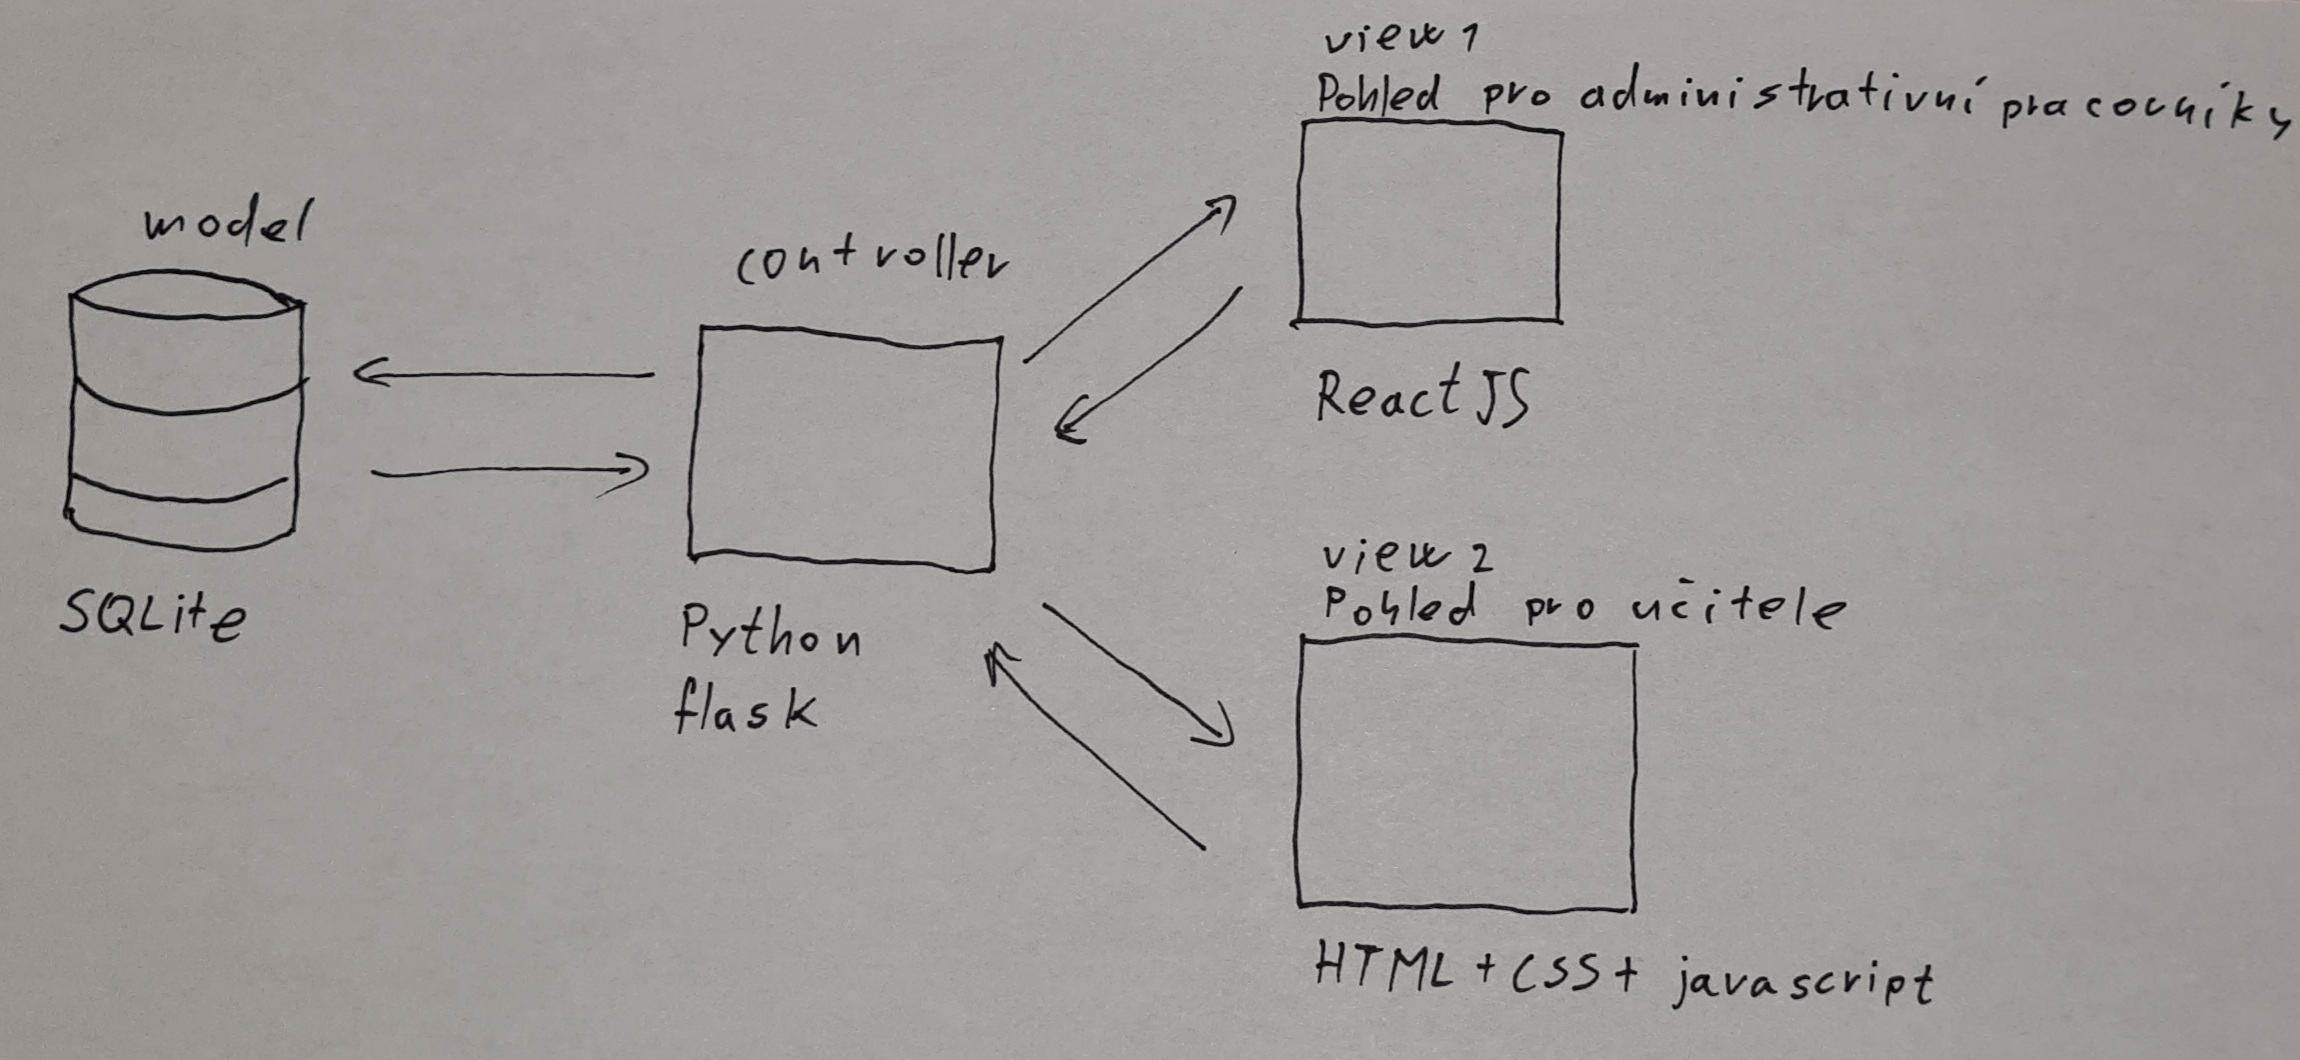 model
SQLite
controller
Python
flask
view 1
Pohled pro administrativní pracovníky
ReactJS
view 2
Pohled pro učitele
HTML + CSS + javascript